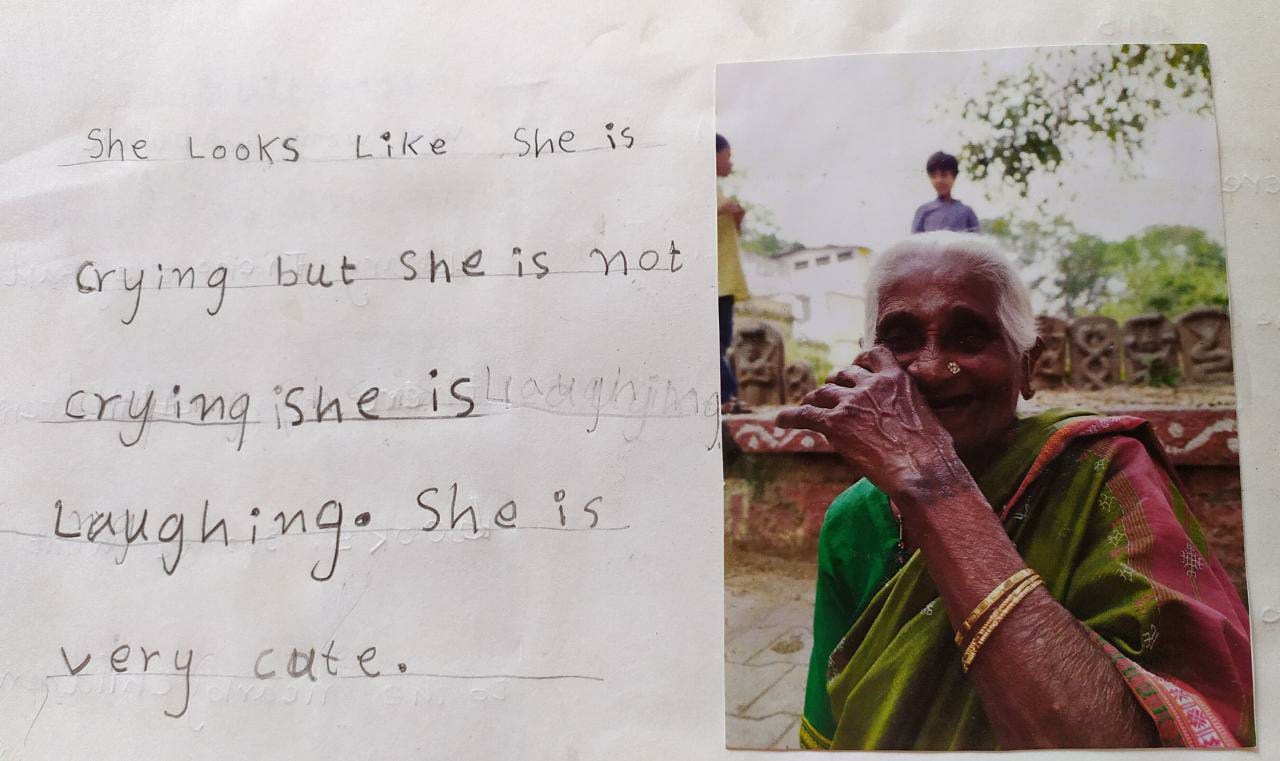 She Looks Like She is
crying but She is not
crying she is Laughing
Laughing. She is
very cute.